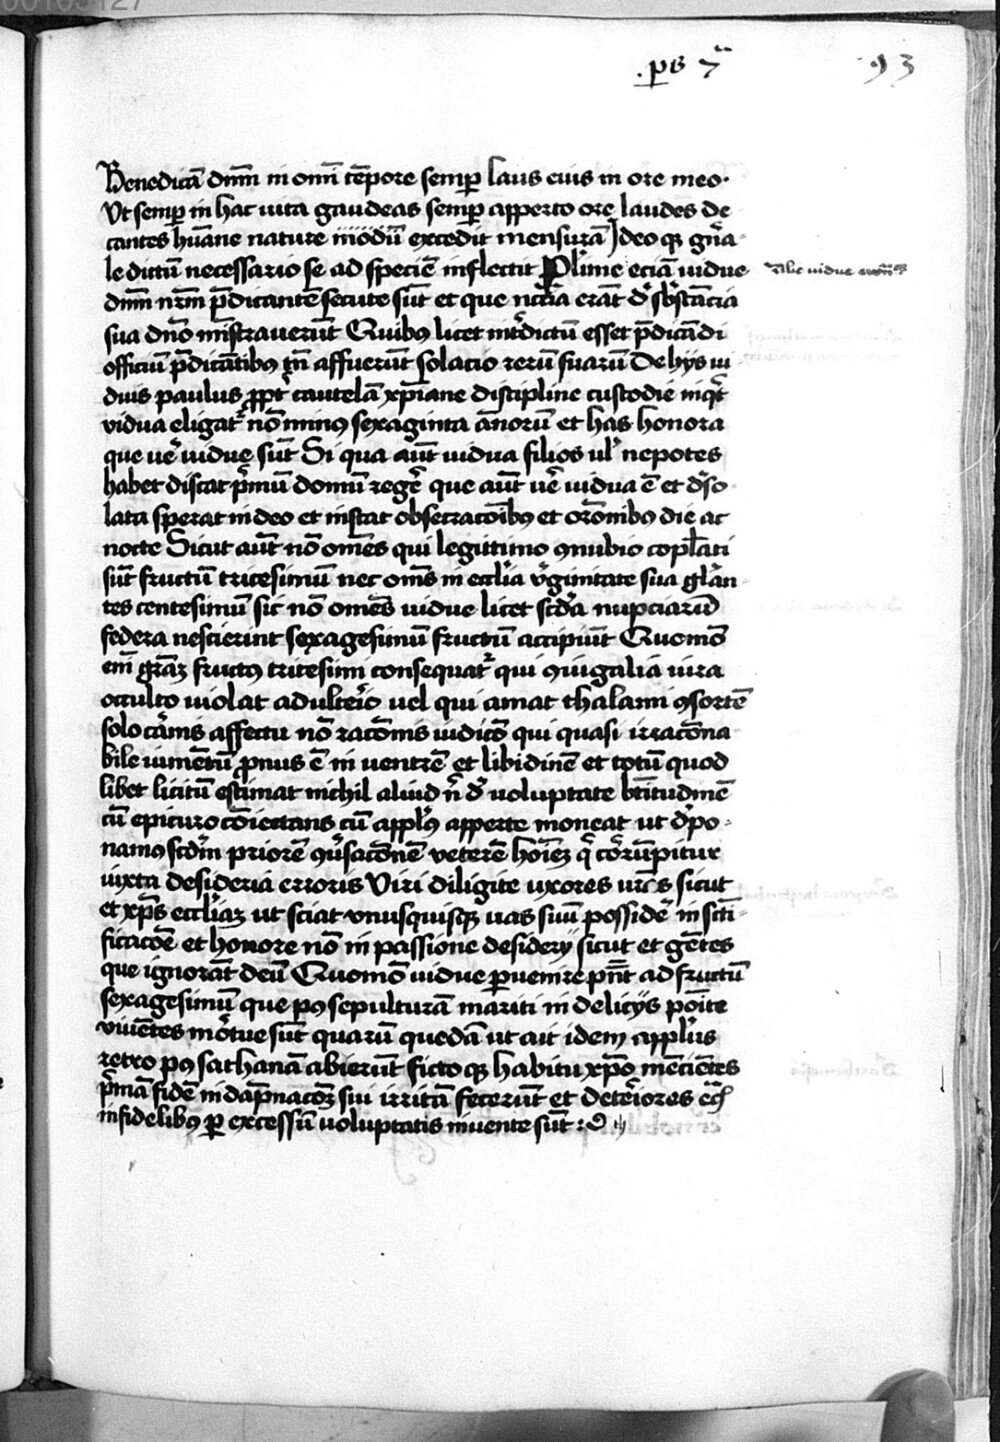 00103127
.ps 7ª
93
Benedicā dnm̄ in omī tēpore semꝑ laus eius in ore meo·
Vt semꝑ in hac uita gaudeas semꝑ apperto ore laudes de
cantes hūane nature modū excedit mensurā Ideo qꝫ gn̄a
le dictū necessario se ad speciē inflectit Plīme eciā uidue
dnm̄ nrm̄ p̄dicantē secute sūt et que nccīa erāt d' sb̄stancia
sua dnō mīstrauerūt Quibꝰ licet int̄dictū esset p̄dicādi
officiū p̄dicātibꝰ tn̄ affuerūt solacio rerū suarū De hijs ui
duis paulus ꝓpt' cautelā xp̄iane discipline custodie inqt'
vidua eligat' nō minꝰ sexaginta ānorū et has honora
que ue' uidue sūt Si qua aūt uidua filios ul' nepotes
habet discat p'mū domū rege' que aūt ue' uidua ē et d'so
lata sperat in deo et instat obsecracoībꝰ et orōnibꝰ die ac
nocte Sicut aūt nō omēs qui legittimo ꝯnubio copl̄ati
sūt fructū tricesimū nec omīs in eccl'ia v'ginitate sua gl'an
tes centesimū sic nō omēs uidue licet scd'a nupciarū
federa nescierint sexagesimū fructū accipiūt Quomō
enī gr̄aꝫ fructꝰ tricesimi consequat' qui ꝯiugalia iura
occulto uiolat adult'io uel qui amat thalami ꝯsortē
solo c'anis affectu nō racōnis iudicō qui quasi irracōna
bile iumētū ꝓnus ē in uentrē et libidinē et totū quod
libet licitū estimat nichil aliud n̄ d' uoluptate btītudinē
cū epicuro cōiectans cū appl'ꝰ apperte moneat ut d'po
namꝰ scd'm priorē ꝯu'sacōnē veterē hoīeꝫ q' cōrūpitur
iuxta desideria erroris Viri diligite uxores urās sicut
et xp̄s eccl'iaꝫ ut sciat vnusquisqꝫ uas suū posside' in scī
ficacōē et honore nō in passione desiderij sicut et gētes
que ignorāt deū Quomō uidue ꝑuenire pn̄t ad fructū
sexagesimū que pꝰ sepulturā mariti in delicijs poīte
viuētes mo'tue sūt quarū quedā ut ait idem appl'us
retro pꝰ sathanā abierūt ficto qꝫ habitu xp̄o mēciētes
p'mā fidē in dāpnacōeꝫ sui irritā fecerūt et det'iores ec'
infidelibꝰ ꝑ excessū uoluptatis inuente sūt :